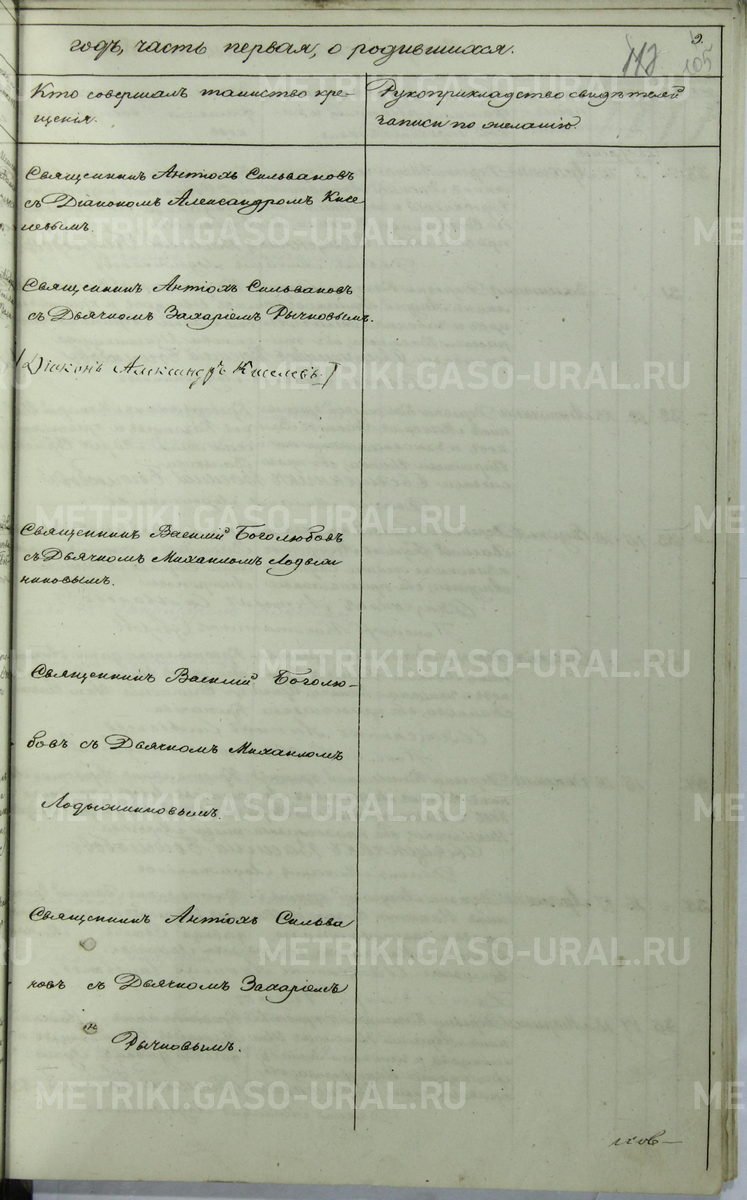 9.
годъ, часть первая, о родившихся.
105
Кто совершалъ таинство кре-
щенія.
Рукоприкладство свидѣтелей
записи по желанію.
Священникъ Антіохъ Сильвановъ
съ Діакономъ Александромъ Кисе
левымъ.
METRIKI.GASO-URAL.RU
Священникъ Антіохъ Сильвановъ
съ Дьячкомъ Захаріемъ Рычковымъ.
Діаконъ Александръ Киселевъ
METRIKI.GASO-URAL.RU
Священникъ Василій Боголюбовъ
съ Дьячкомъ Михаиломъ Лодыж
никовымъ.
METRIKI.GASO-URAL.RU
Священникъ Василій Боголю-
METRIKI.GASO-URAL.RU
бовъ съ Дьячкомъ Михаиломъ
Лодыжниковымъ.
METRIKI.GASO-URAL.RU
Священникъ Антіохъ Сильва
METRIKI.GASO-URAL.RU
новъ съ Дьячкомъ Захаріемъ
Рычковымъ.
METRIKI.GASO-URAL.RU